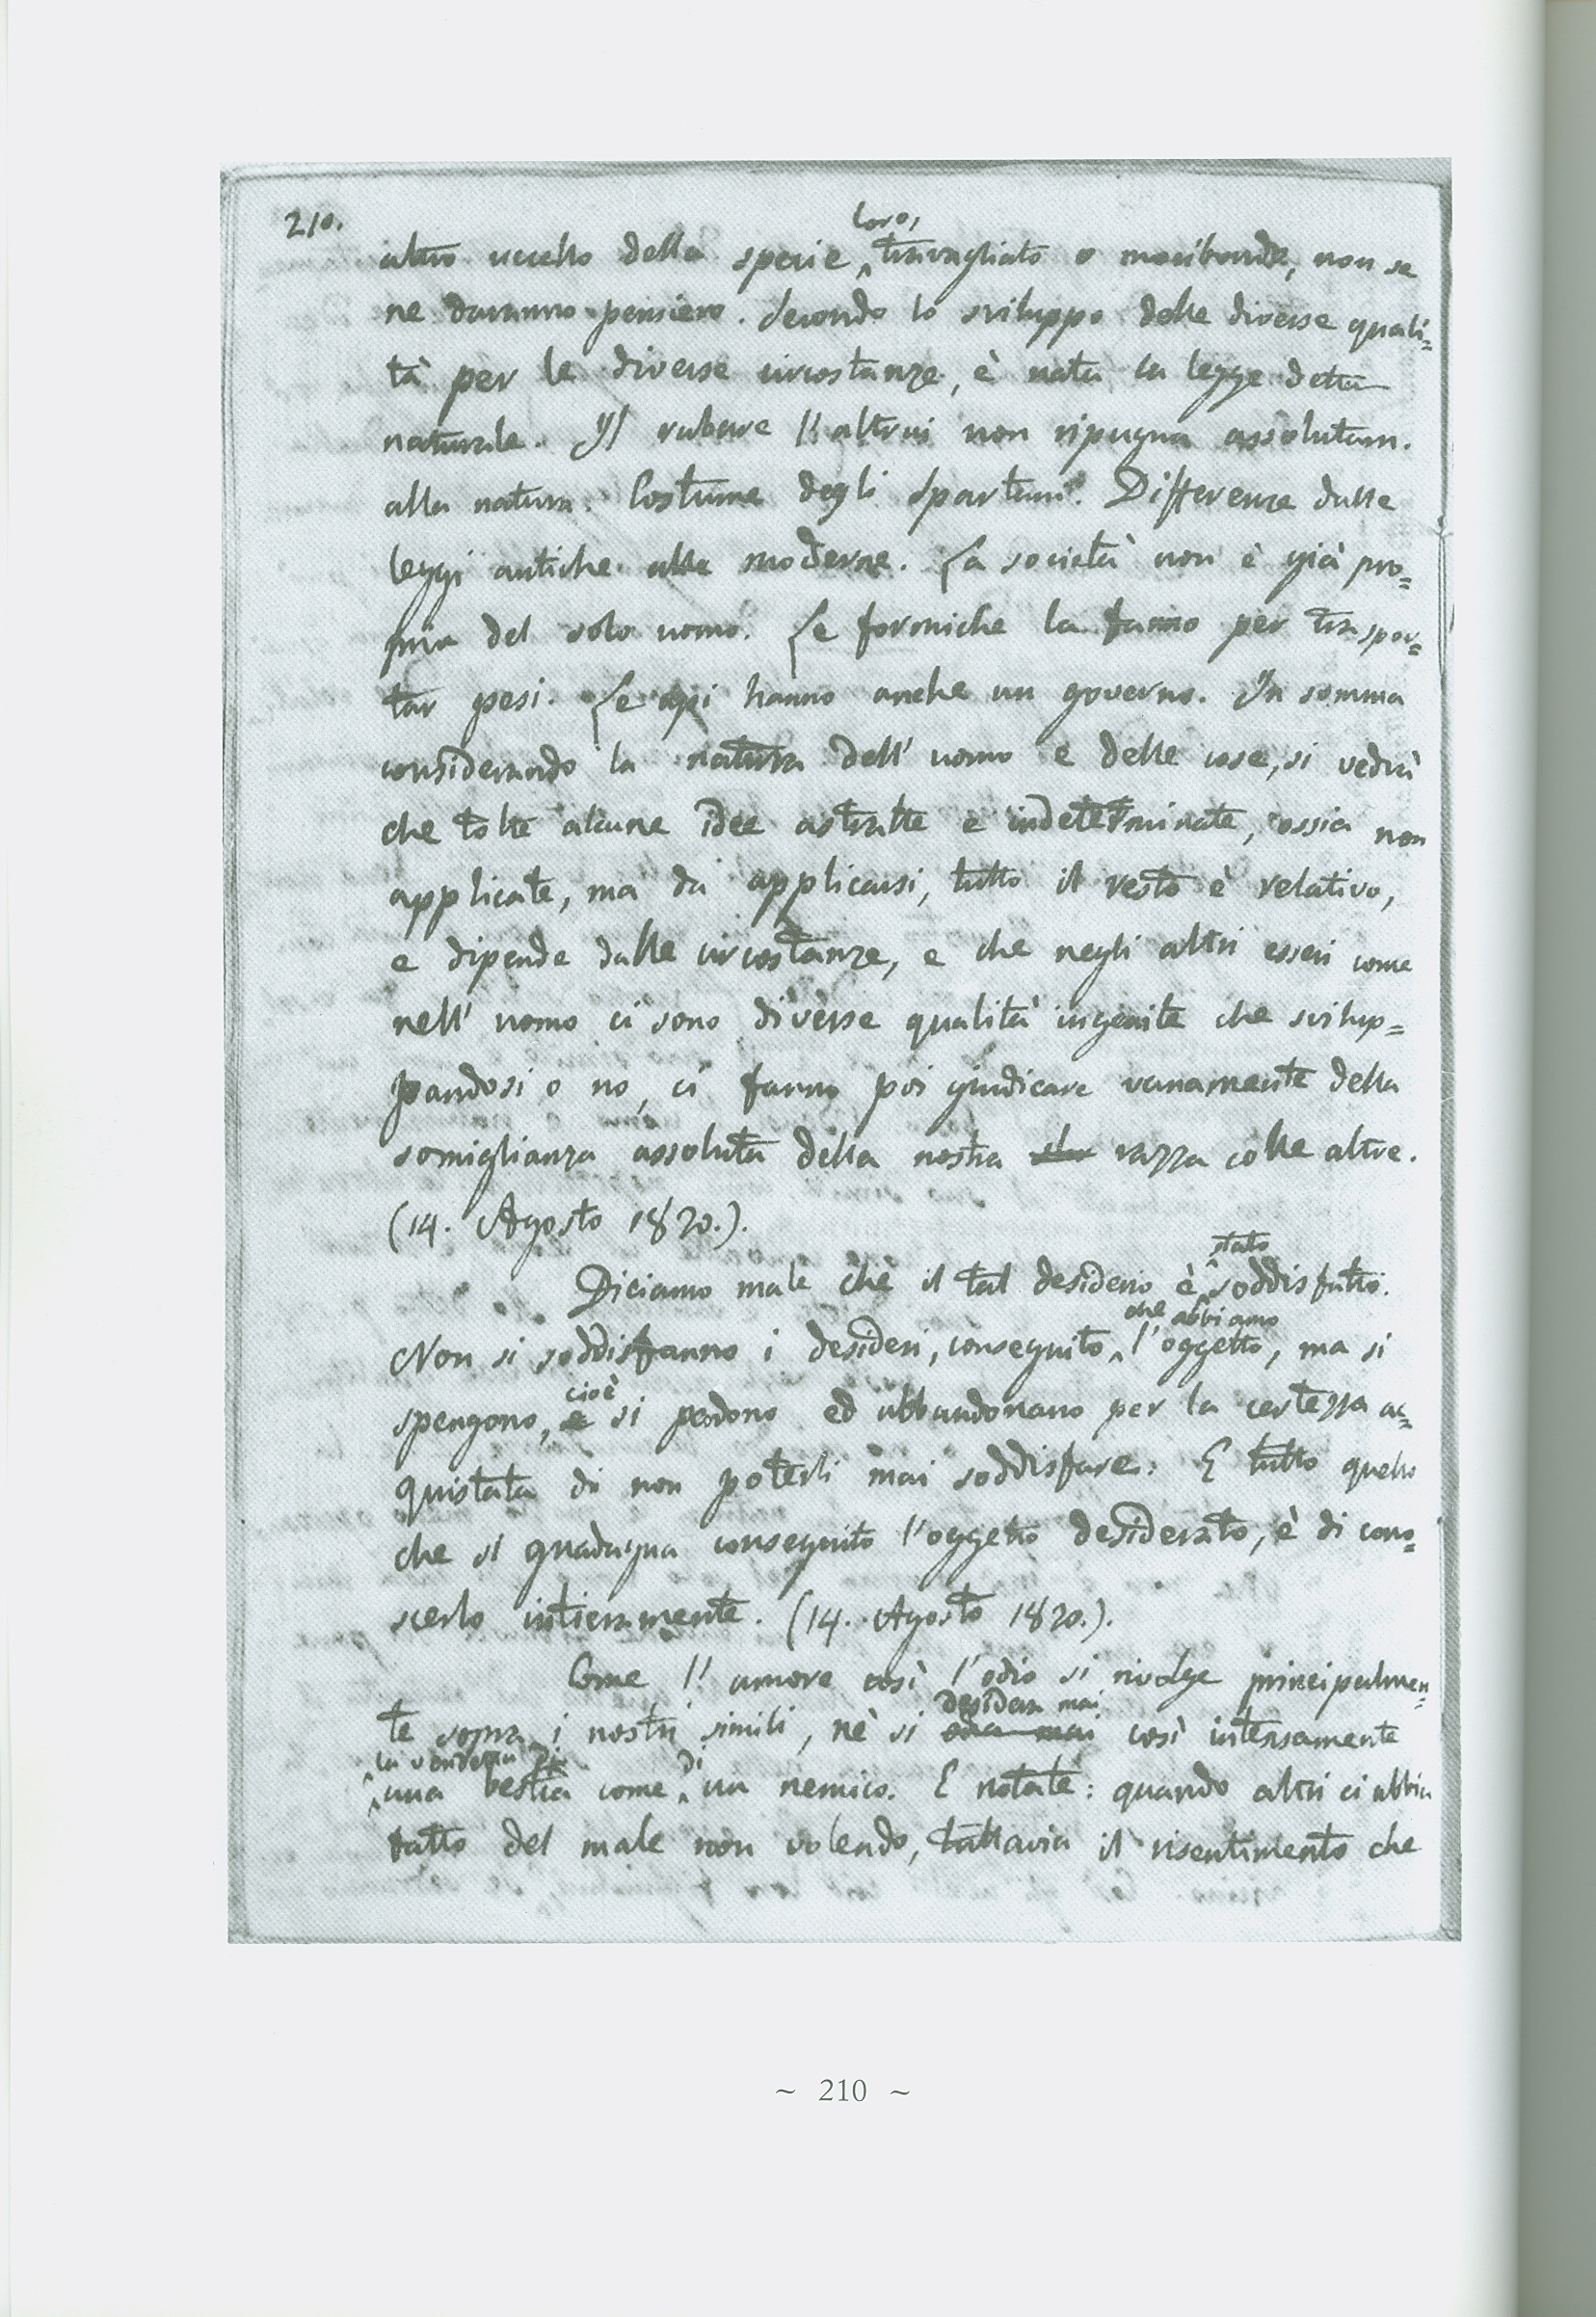 210.
altro uccello della specie loro, travagliato o moribondo, non se
ne daranno pensiero. Secondo lo sviluppo delle diverse quali=
tà per le diverse circostanze, è nata la legge detta
naturale. Il rubare l'altrui non ripugna assolutam.
alla natura. Costume degli Spartani. Differenze dalle
leggi antiche alle moderne. La società non è già pro=
pria del solo uomo. Le formiche la fanno per traspor=
tar pesi. Le api hanno anche un governo. In somma
considerando la natura dell'uomo e delle cose, si vedrà
che tolte alcune idee astratte e indeterminate, ossia non
applicate, ma da applicarsi, tutto il resto è relativo,
e dipende dalle circostanze, e che negli altri esseri come
nell'uomo ci sono diverse qualità ingenite che svilup=
pandosi o no, ci fanno poi giudicare vanamente della
somiglianza assoluta della nostra razza colle altre.
(14. Agosto 1820.).
Diciamo male che il tal desiderio è stato soddisfatto.
Non si soddisfanno i desideri, conseguito che abbiamo l'oggetto, ma si
spengono, cioè si perdono ed abbandonano per la certezza ac=
quistata di non poterli mai soddisfare. E tutto quello
che si guadagna conseguito l'oggetto desiderato, è di cono=
scerlo intieramente. (14. Agosto 1820.).
Come l'amore così l'odio si rivolge principalmen=
te sopra i nostri simili, nè si desidera mai così intensamente
la vendetta di una bestia come di un nemico. E notate: quando altri ci abbia
fatto del male non volendo, tuttavia il risentimento che
~ 210 ~